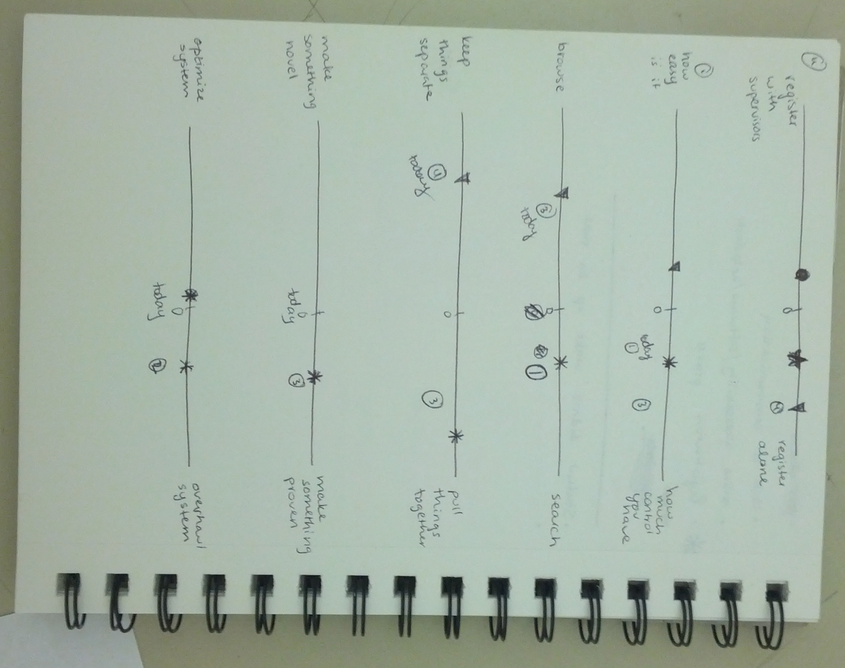 ④
register
with
supervisors
0
④
register
alone
②
how
easy
is it
0
today
①
③
how
much
control
you
have
browse
③
today
0
①
search
keep
things
separate
④
today
0
③
pull
things
together
make
something
novel
0
today
③
make
something
proven
optimize
system
0
today
②
overhaul
system